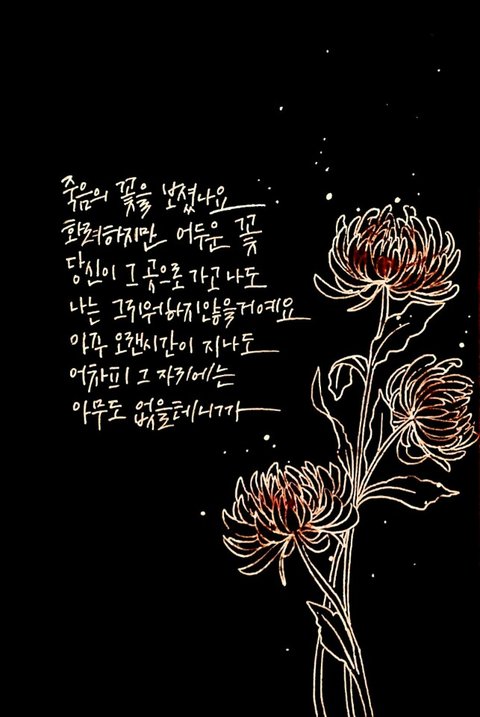 죽음의 꽃을 보셨나요
화려하지만 어두운 꽃
당신이 그 곳으로 가고 나도
나는 그리워하지않을거예요
아주 오랜시간이 지나도
어차피 그 자리에는
아무도 없을테니까